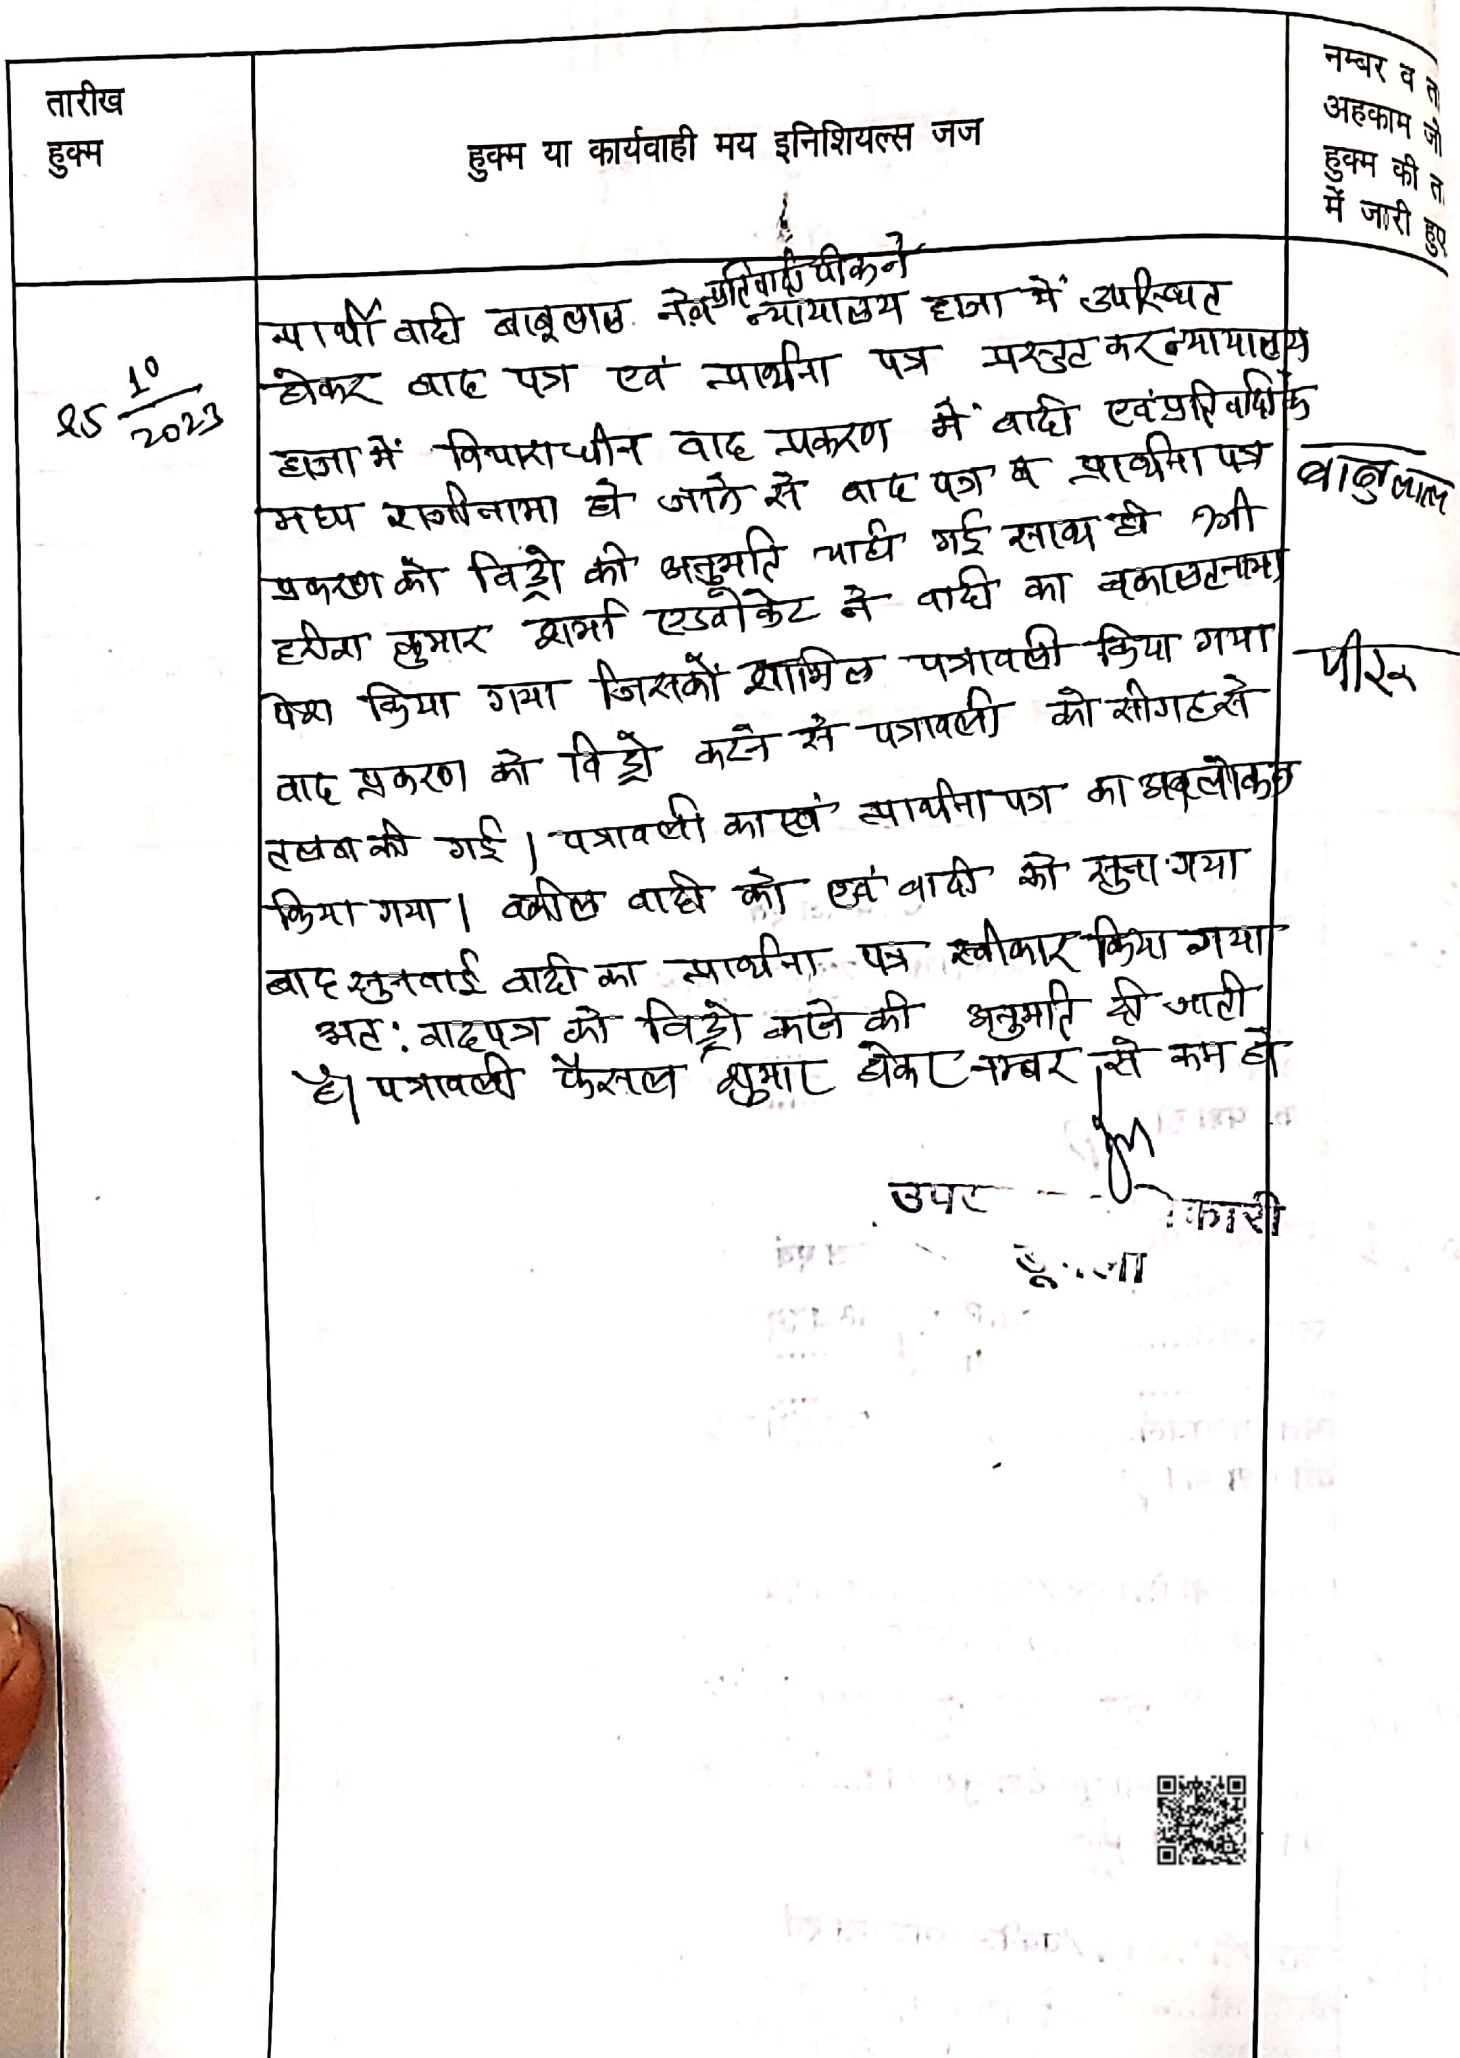 तारीख
हुक्म
हुक्म या कार्यवाही मय इनिशियल्स जज
नम्बर व ता
अहकाम जो
हुक्म की ता
में जारी हुए
25 10/2023
प्रतिवादी पीरूने
प्रार्थी वादी बाबूलाल ने व न्यायालय हाजा में उपस्थित
होकर वाद पत्र एवं प्रार्थना पत्र प्रस्तुत कर न्यायालय
हाजा में विचाराधीन वाद प्रकरण में वादी एवं प्रतिवादी के
मध्य राजीनामा हो जाने से वाद पत्र व प्रार्थना पत्र
प्रकरण को विड्रो की अनुमति चाही गई साथ ही श्री
कुमार शर्मा एडवोकेट ने वादी का वकालतनामा
पेश किया गया जिसको शामिल पत्रावली किया गया
वाद प्रकरण को विड्रो करने से पत्रावली को सीगह से
तलब की गई। पत्रावली का एवं प्रार्थना पत्र का अवलोकन
किया गया। वकील वादी को एवं वादी को सुना गया
बाद सुनवाई वादी का प्रार्थना पत्र स्वीकार किया गया
अतः वादपत्र को विड्रो करने की अनुमति दी जाती
है। पत्रावली फैसल शुमार होकर नम्बर से कम हो
बाबुलाल
पीरू